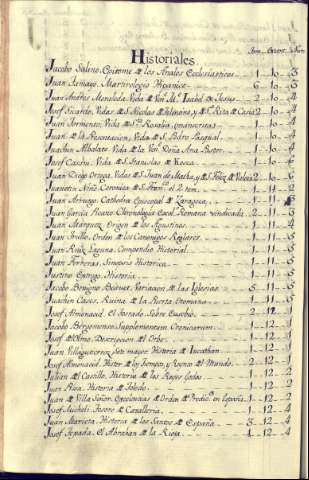 Historiales
Jacobo Saleno, Epitome de los Anales Ecclesiasticos 1..10..3
Juan Tamayo, Martirologio Hispanico 6..10..3
Juan Andres Vida de Ven. M. Isabel de Jesus 2..10..4
Josef Sicardo, Vidas de S. Nicolas de Tolentino, y Sta. Rita de Casia 2..10..4
Juan Vida de Sta. Rosalia 1..10..4
Juan de la Vida de S. Pedro 1..10..4
Juachin Albalate Vida de la Ven. Doña Ana 1..10..5
Josef Vida de S. Stanislao de Kosca 1..10..6
Juan Diego Ortega, Vidas de S. Juan de Matha, y S. Felix de Valois 2..10..6
Juanetin Niño, Cronica de S. Fran.co 2 tom. 1..11..2
Juan Arruego, Cathedra Episcopal de Zaragoza 1..11..3
Juan Garcia Chronologia Romana vindicada 2..11..3
Juan Marquez, Origen de los Agustinos 1..11..4
Juan Trullo, Orden de los Canonigos Reglares 1..11..5
Juan Ruiz Laguna, Compendio Historial 1..11..5
Juan Ferreras, Sinopsis Historica 1..11..5
Justino Historia 1..11..5
Jacobo Benigno Bosuet, Variacion de las Iglesias 5..11..6
Juachin Cases, Ruina de la Puerta Otomana 1..11..6
Josef Almonacid, El Tostado Sobre Eusebio 2..12
Jacobo Bergomense, Supplementum Cronicarum 1..12..1
Josef de Olmo, Descripcion del Orbe 1..12..1
Juan Villagutierre, Soto mayor, Historia de Yucathan 1..12..1
Josef Almonacid, Histor. de los tiempos, y Reyno del Mundo 2..12..1
Julian del Castillo, Historia de los Reyes Godos 1..12..2
Juan Pisa, Historia de Toledo 1..12..2
Juan de Villa Señor, Excelencias de Orden de Predic.res en España 1..12..2
Josef Micheli, Tesoro de Cavalleria 1..12..4
Juan Marieta, Historia de los Santos de España 3..12..4
Josef Tejada, El Abrahan de la Rioja 1..12..4